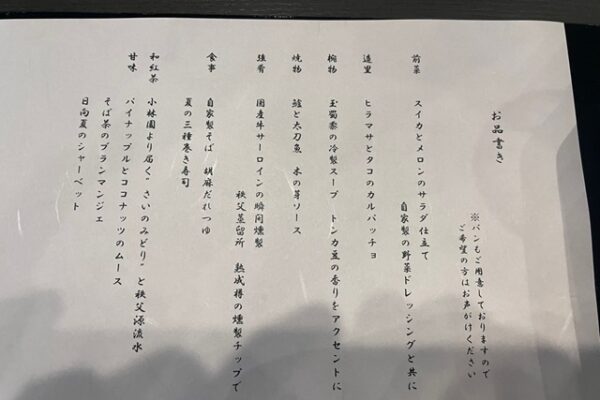 お品書き
※パンもご用意しておりますので
ご希望の方はお声がけください
前菜 スイカとメロンのサラダ仕立て
自家製の野菜ドレッシングと共に
造里 ヒラマサとタコのカルパッチョ
椀物 玉蜀黍の冷製スープ トンカ豆の香りをアクセントに
焼物 鱸と太刀魚 木の芽ソース
強肴 国産牛サーロインの瞬間燻製
秩父蒸留所 熟成樽の燻製チップで
食事 自家製そば 胡麻だれつゆ
夏の三種巻き寿司
和紅茶 小林園より届く"さいのみどり"と秩父源流水
甘味 パイナップルとココナッツのムース
そば茶のブランマンジェ
日向夏のシャーベット